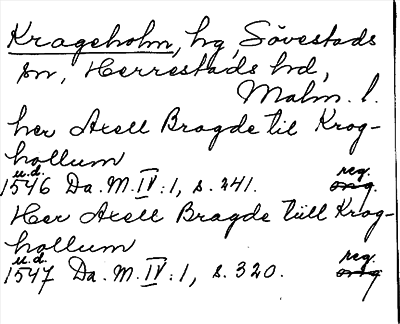 Krageholm, hg, Sövestads
sn, Herrestads hd,
Malm. l.
her Axell Bragde til Krog-
hollum
u.d. reg.
1546 Da. M. IV:1, s. 241. orig.
Her Axell Bragde tiill Krog-
hollum
u.d. reg.
1547 Da. M. IV:1, s. 320. orig